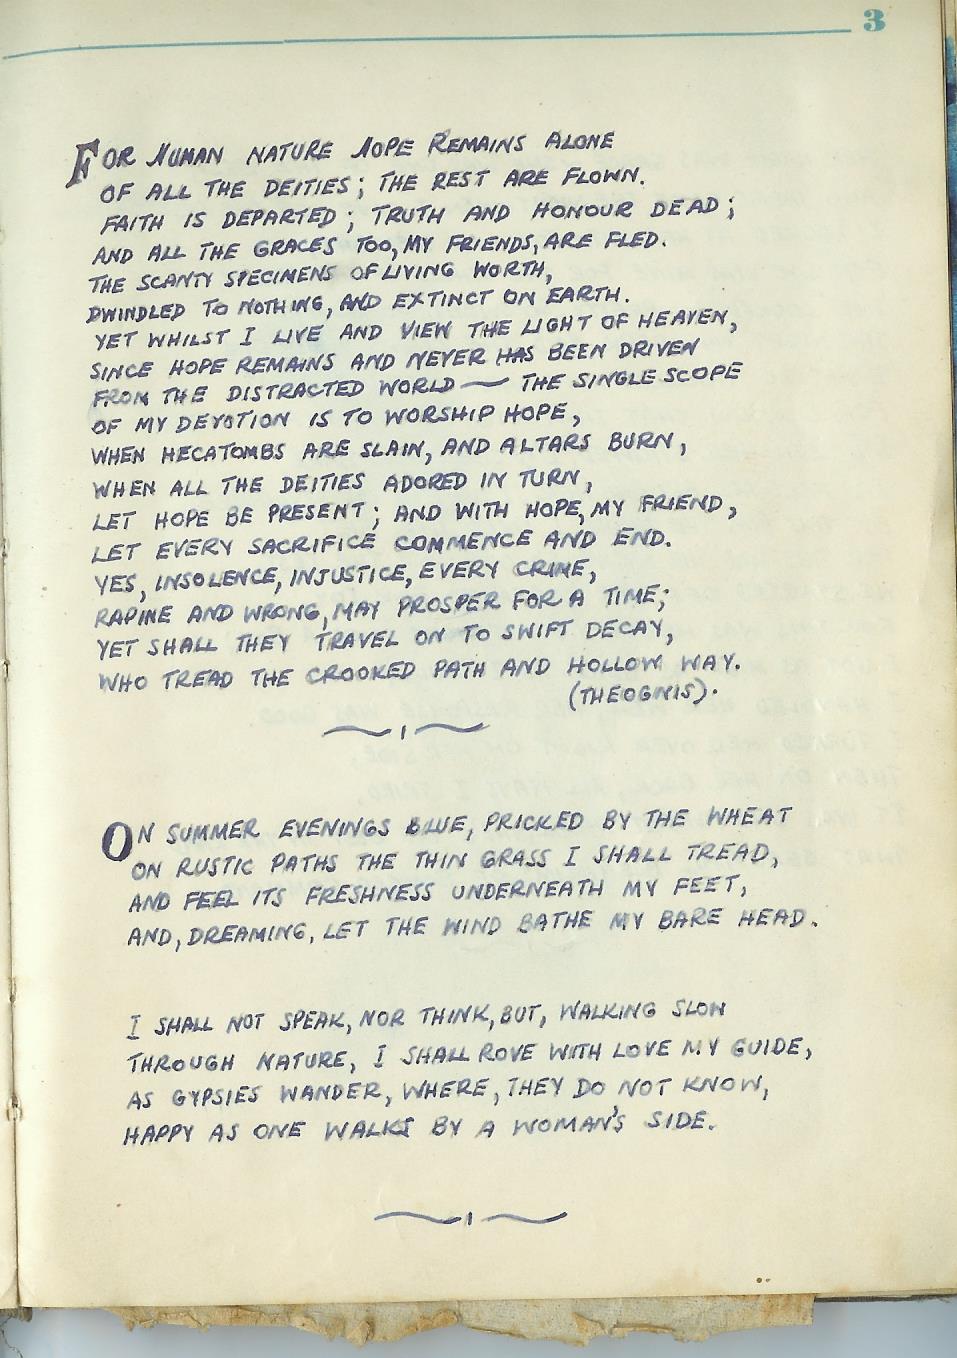 3
FOR HUMAN NATURE HOPE REMAINS ALONE
OF ALL THE DEITIES; THE REST ARE FLOWN.
FAITH IS DEPARTED; TRUTH AND HONOUR DEAD;
AND ALL THE GRACES TOO, MY FRIENDS, ARE FLED.
THE SCANTY SPECIMENS OF LIVING WORTH,
DWINDLED TO NOTHING, AND EXTINCT ON EARTH.
YET WHILST I LIVE AND VIEW THE LIGHT OF HEAVEN,
SINCE HOPE REMAINS AND NEVER HAS BEEN DRIVEN
FROM THE DISTRACTED WORLD — THE SINGLE SCOPE
OF MY DEVOTION IS TO WORSHIP HOPE,
WHEN HECATOMBS ARE SLAIN, AND ALTARS BURN,
WHEN ALL THE DEITIES ADORED IN TURN,
LET HOPE BE PRESENT; AND WITH HOPE, MY FRIEND,
LET EVERY SACRIFICE COMMENCE AND END.
YES, INSOLENCE, INJUSTICE, EVERY CRIME,
RAPINE AND WRONG, MAY PROSPER FOR A TIME;
YET SHALL THEY TRAVEL ON TO SWIFT DECAY,
WHO TREAD THE CROOKED PATH AND HOLLOW WAY.
(THEOGNIS).
ON SUMMER EVENINGS BLUE, PRICKED BY THE WHEAT
ON RUSTIC PATHS THE THIN GRASS I SHALL TREAD,
AND FEEL ITS FRESHNESS UNDERNEATH MY FEET,
AND, DREAMING, LET THE WIND BATHE MY BARE HEAD.
I SHALL NOT SPEAK, NOR THINK, BUT, WALKING SLOW
THROUGH NATURE, I SHALL ROVE WITH LOVE MY GUIDE,
AS GYPSIES WANDER, WHERE, THEY DO NOT KNOW,
HAPPY AS ONE WALKS BY A WOMAN'S SIDE.